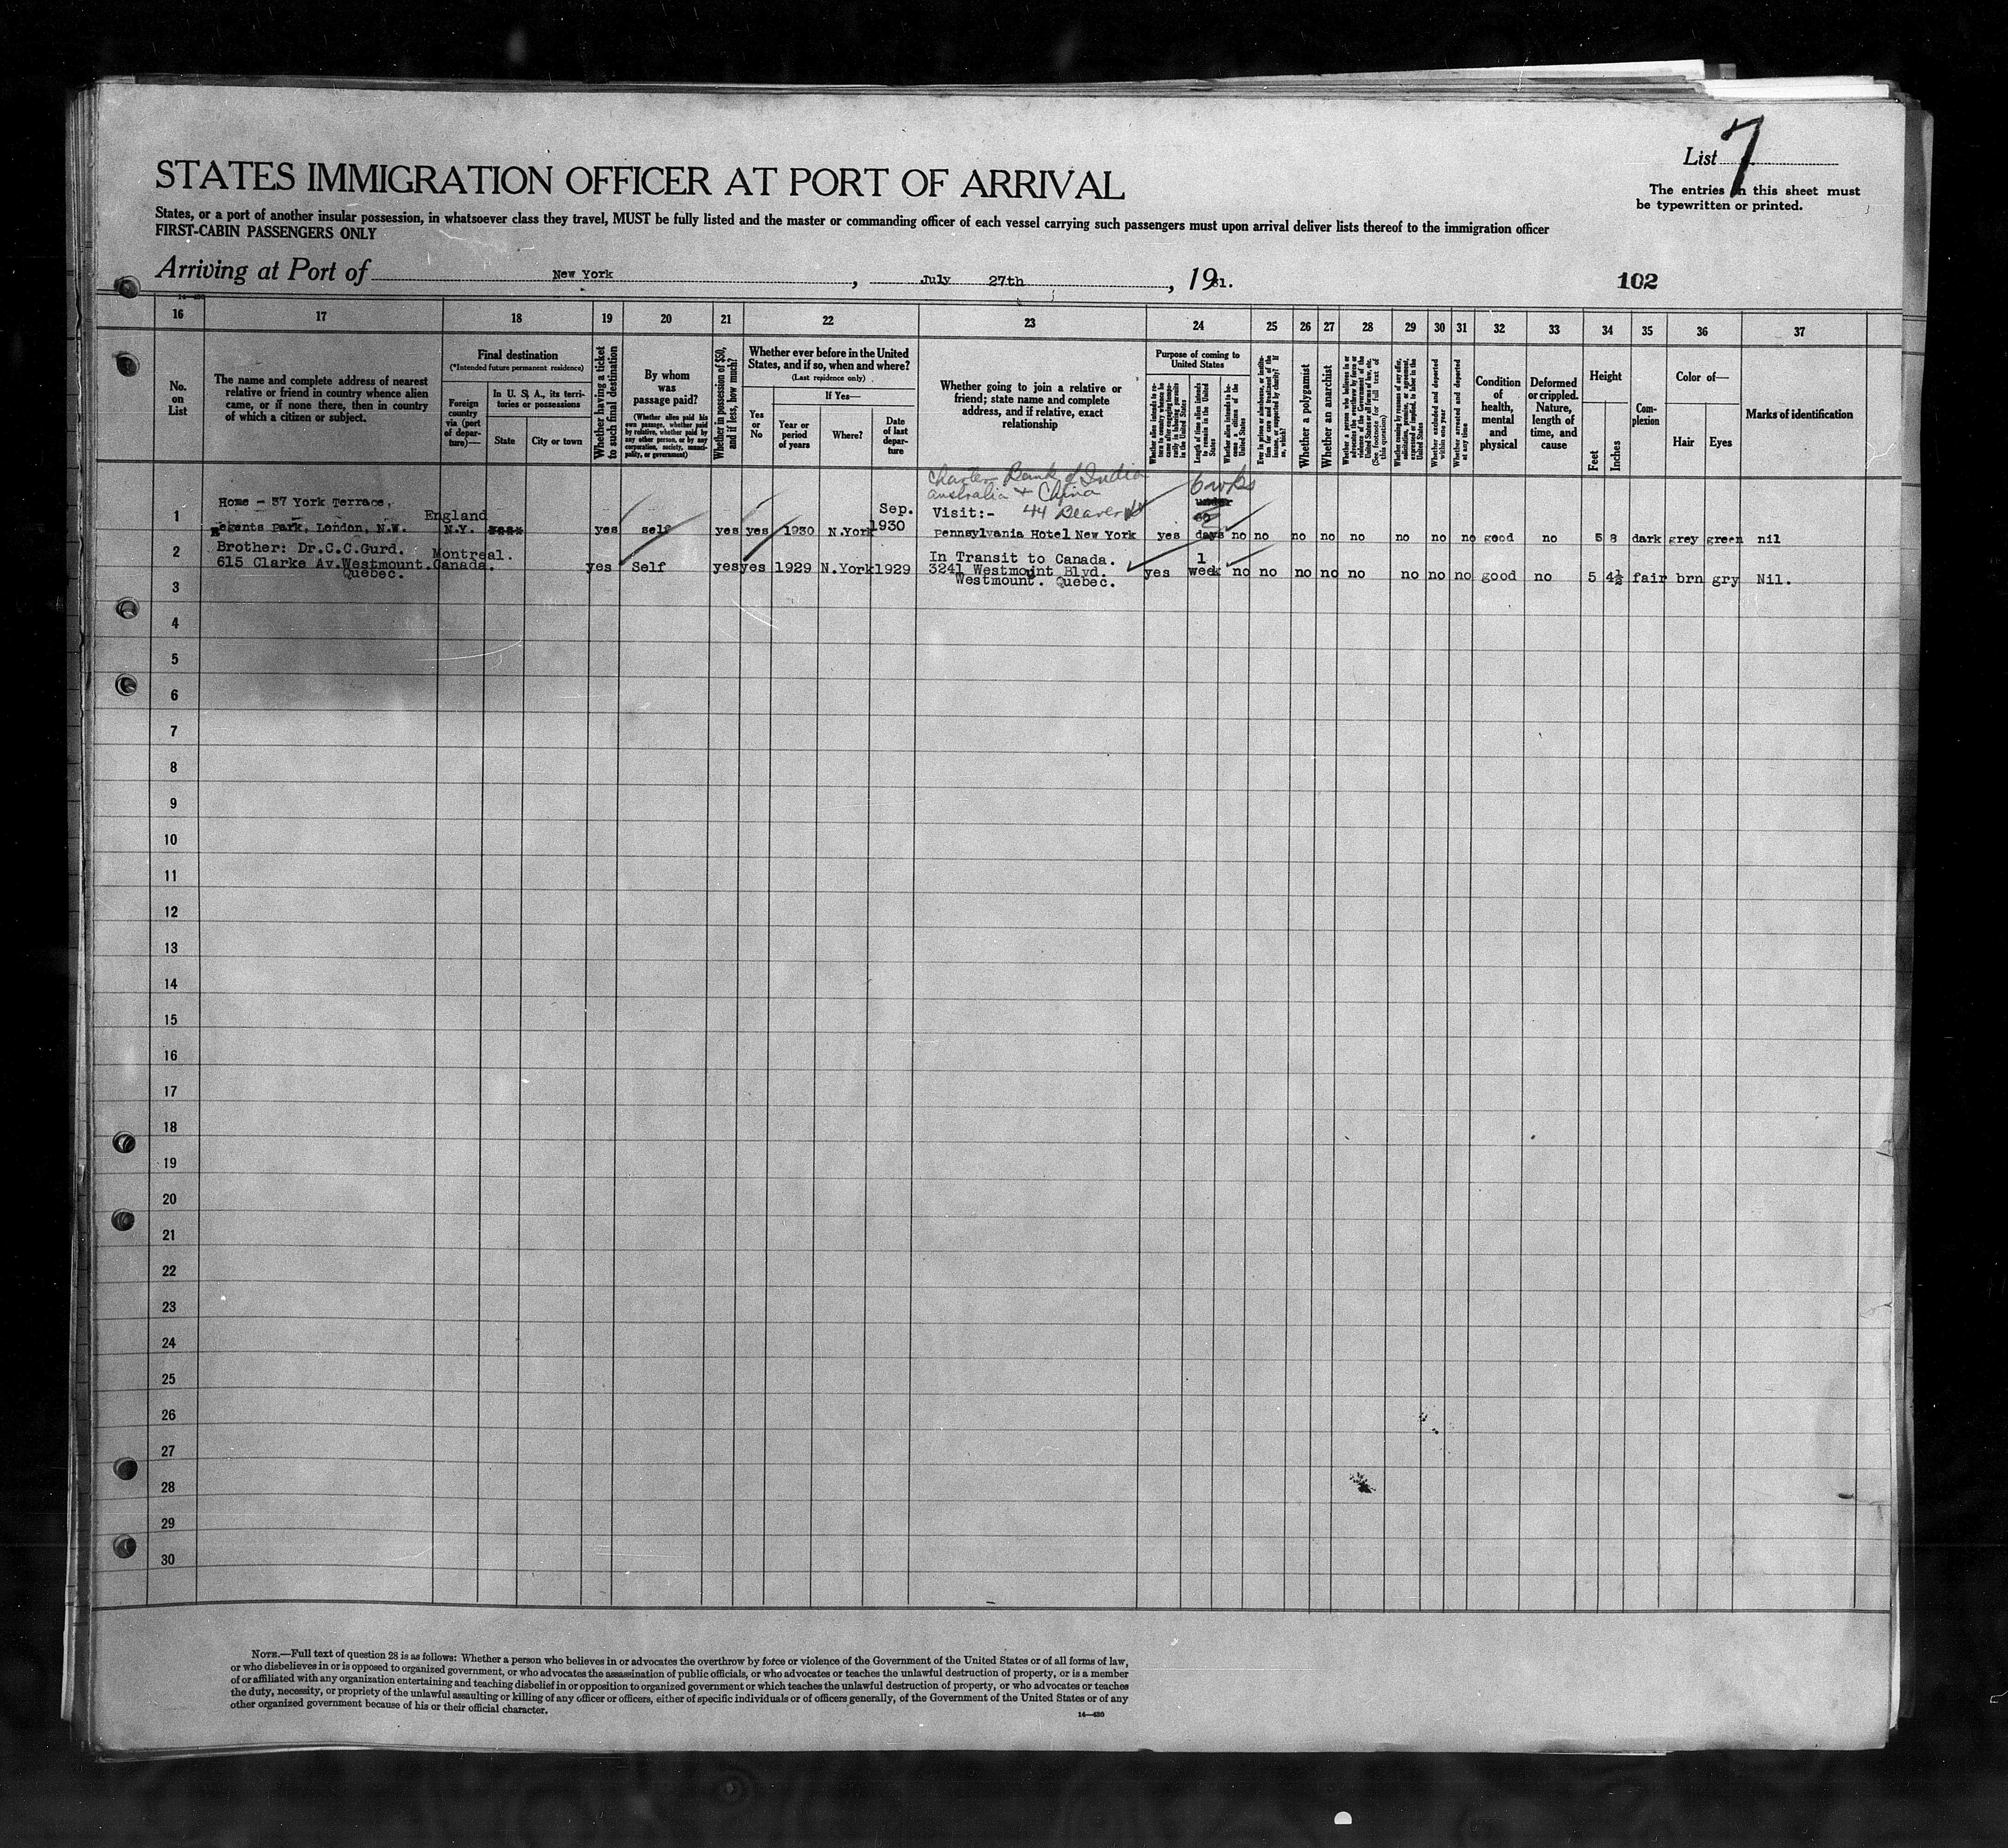 List 7
STATES IMMIGRATION OFFICER AT PORT OF ARRIVAL
The entries on this sheet must
be typewritten or printed.
States, or a port of another insular possession, in whatsoever class they travel, MUST be fully listed and the master or commanding officer of each vessel carrying such passengers must upon arrival deliver lists thereof to the immigration officer
FIRST-CABIN PASSENGERS ONLY
Arriving at Port of New York, July 27th, 1931.
102
16 17 18 19 20 21 22 23 24 25 26 27 28 29 30 31 32 33 34 35 36 37
No. on List
The name and complete address of nearest
relative or friend in country whence alien
came, or if none there, then in country
of which a citizen or subject.
Final destination
(*Intended future permanent residence)
Foreign country via (port of departure)—
In U. S. A., its territories or possessions
State
City or town
Whether having a ticket to such final destination
By whom was passage paid?
(Whether alien paid his own passage, whether paid by relative, whether paid by any other person, or by any corporation, society, municipality, or government)
Whether in possession of $50, and if less, how much?
Whether ever before in the United
States, and if so, when and where?
(Last residence only)
If Yes—
Yes or No
Year or period of years
Where?
Date of last departure
Whether going to join a relative or
friend; state name and complete
address, and if relative, exact
relationship
Purpose of coming to United States
Length of time alien intends to remain in the United States
Whether alien intends to become a citizen of the United States
Whether a polygamist
Whether an anarchist
(See footnote for full text of this question)
Whether excluded and deported within one year
Whether arrested and deported at any time
Condition of health, mental and physical
Deformed or crippled. Nature, length of time, and cause
Height
Feet
Inches
Complexion
Color of—
Hair
Eyes
Marks of identification
Charter Bank of India
Australia + China
6 wks
1 Home - 37 York Terrace, England Sep. Visit:- 44 Beaver St
Regents Park, London, N.W. N.Y. yes self yes yes 1930 N.York 1930 Pennsylvania Hotel New York yes days no no no no no no no no good no 5 8 dark grey green nil
2 Brother: Dr.C.C.Gurd. Montreal. In Transit to Canada. 1
615 Clarke Av.Westmount. Canada. yes Self yes yes 1929 N.York 1929 3241 Westmount Blvd. yes week no no no no no no no no good no 5 4½ fair brn gry Nil.
Quebec. Westmount. Quebec.
3
4
5
6
7
8
9
10
11
12
13
14
15
16
17
18
19
20
21
22
23
24
25
26
27
28
29
30
NOTE.—Full text of question 28 is as follows: Whether a person who believes in or advocates the overthrow by force or violence of the Government of the United States or of all forms of law,
or who disbelieves in or is opposed to organized government, or who advocates the assassination of public officials, or who advocates or teaches the unlawful destruction of property, or is a member
of or affiliated with any organization entertaining and teaching disbelief in or opposition to organized government or which teaches the unlawful destruction of property, or who advocates or teaches
the duty, necessity, or propriety of the unlawful assaulting or killing of any officer or officers, either of specific individuals or of officers generally, of the Government of the United States or of any
other organized government because of his or their official character.
14—430